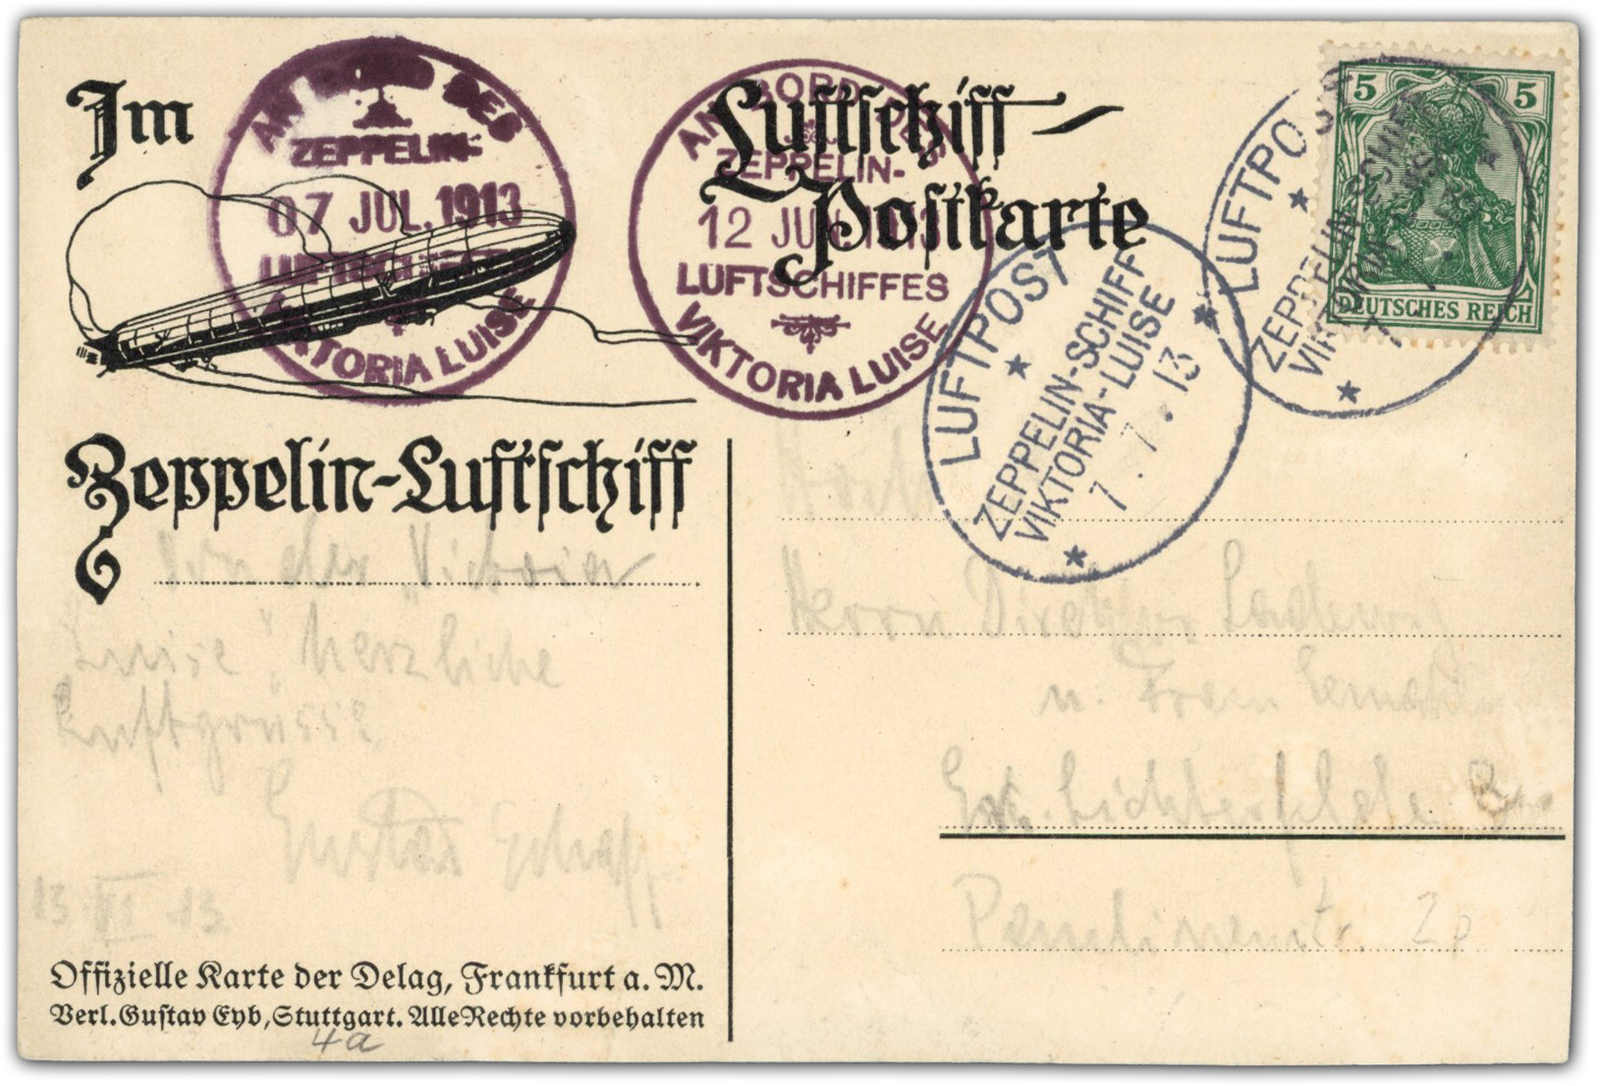 Im
Luftschiff-
Postkarte
AN BORD DES
ZEPPELIN-
07 JUL. 1913
LUFTSCHIFFES
VIKTORIA LUISE
AN BORD DES
ZEPPELIN-
12 JUL. 1913
LUFTSCHIFFES
VIKTORIA LUISE
LUFTPOST
ZEPPELIN-SCHIFF
VIKTORIA-LUISE
7.7.13
LUFTPOST
ZEPPELIN-SCHIFF
5 5
DEUTSCHES REICH
Zeppelin-Luftschiff
Von der "Victoria
Luise", herzliche
Luftgrüsse
Gustav
13 VII 13
Offizielle Karte der Delag, Frankfurt a. M.
Verl. Gustav Eyb, Stuttgart. Alle Rechte vorbehalten
4a
Herrn Direktor Ladewig
u. Frau
Gr. Lichterfelde